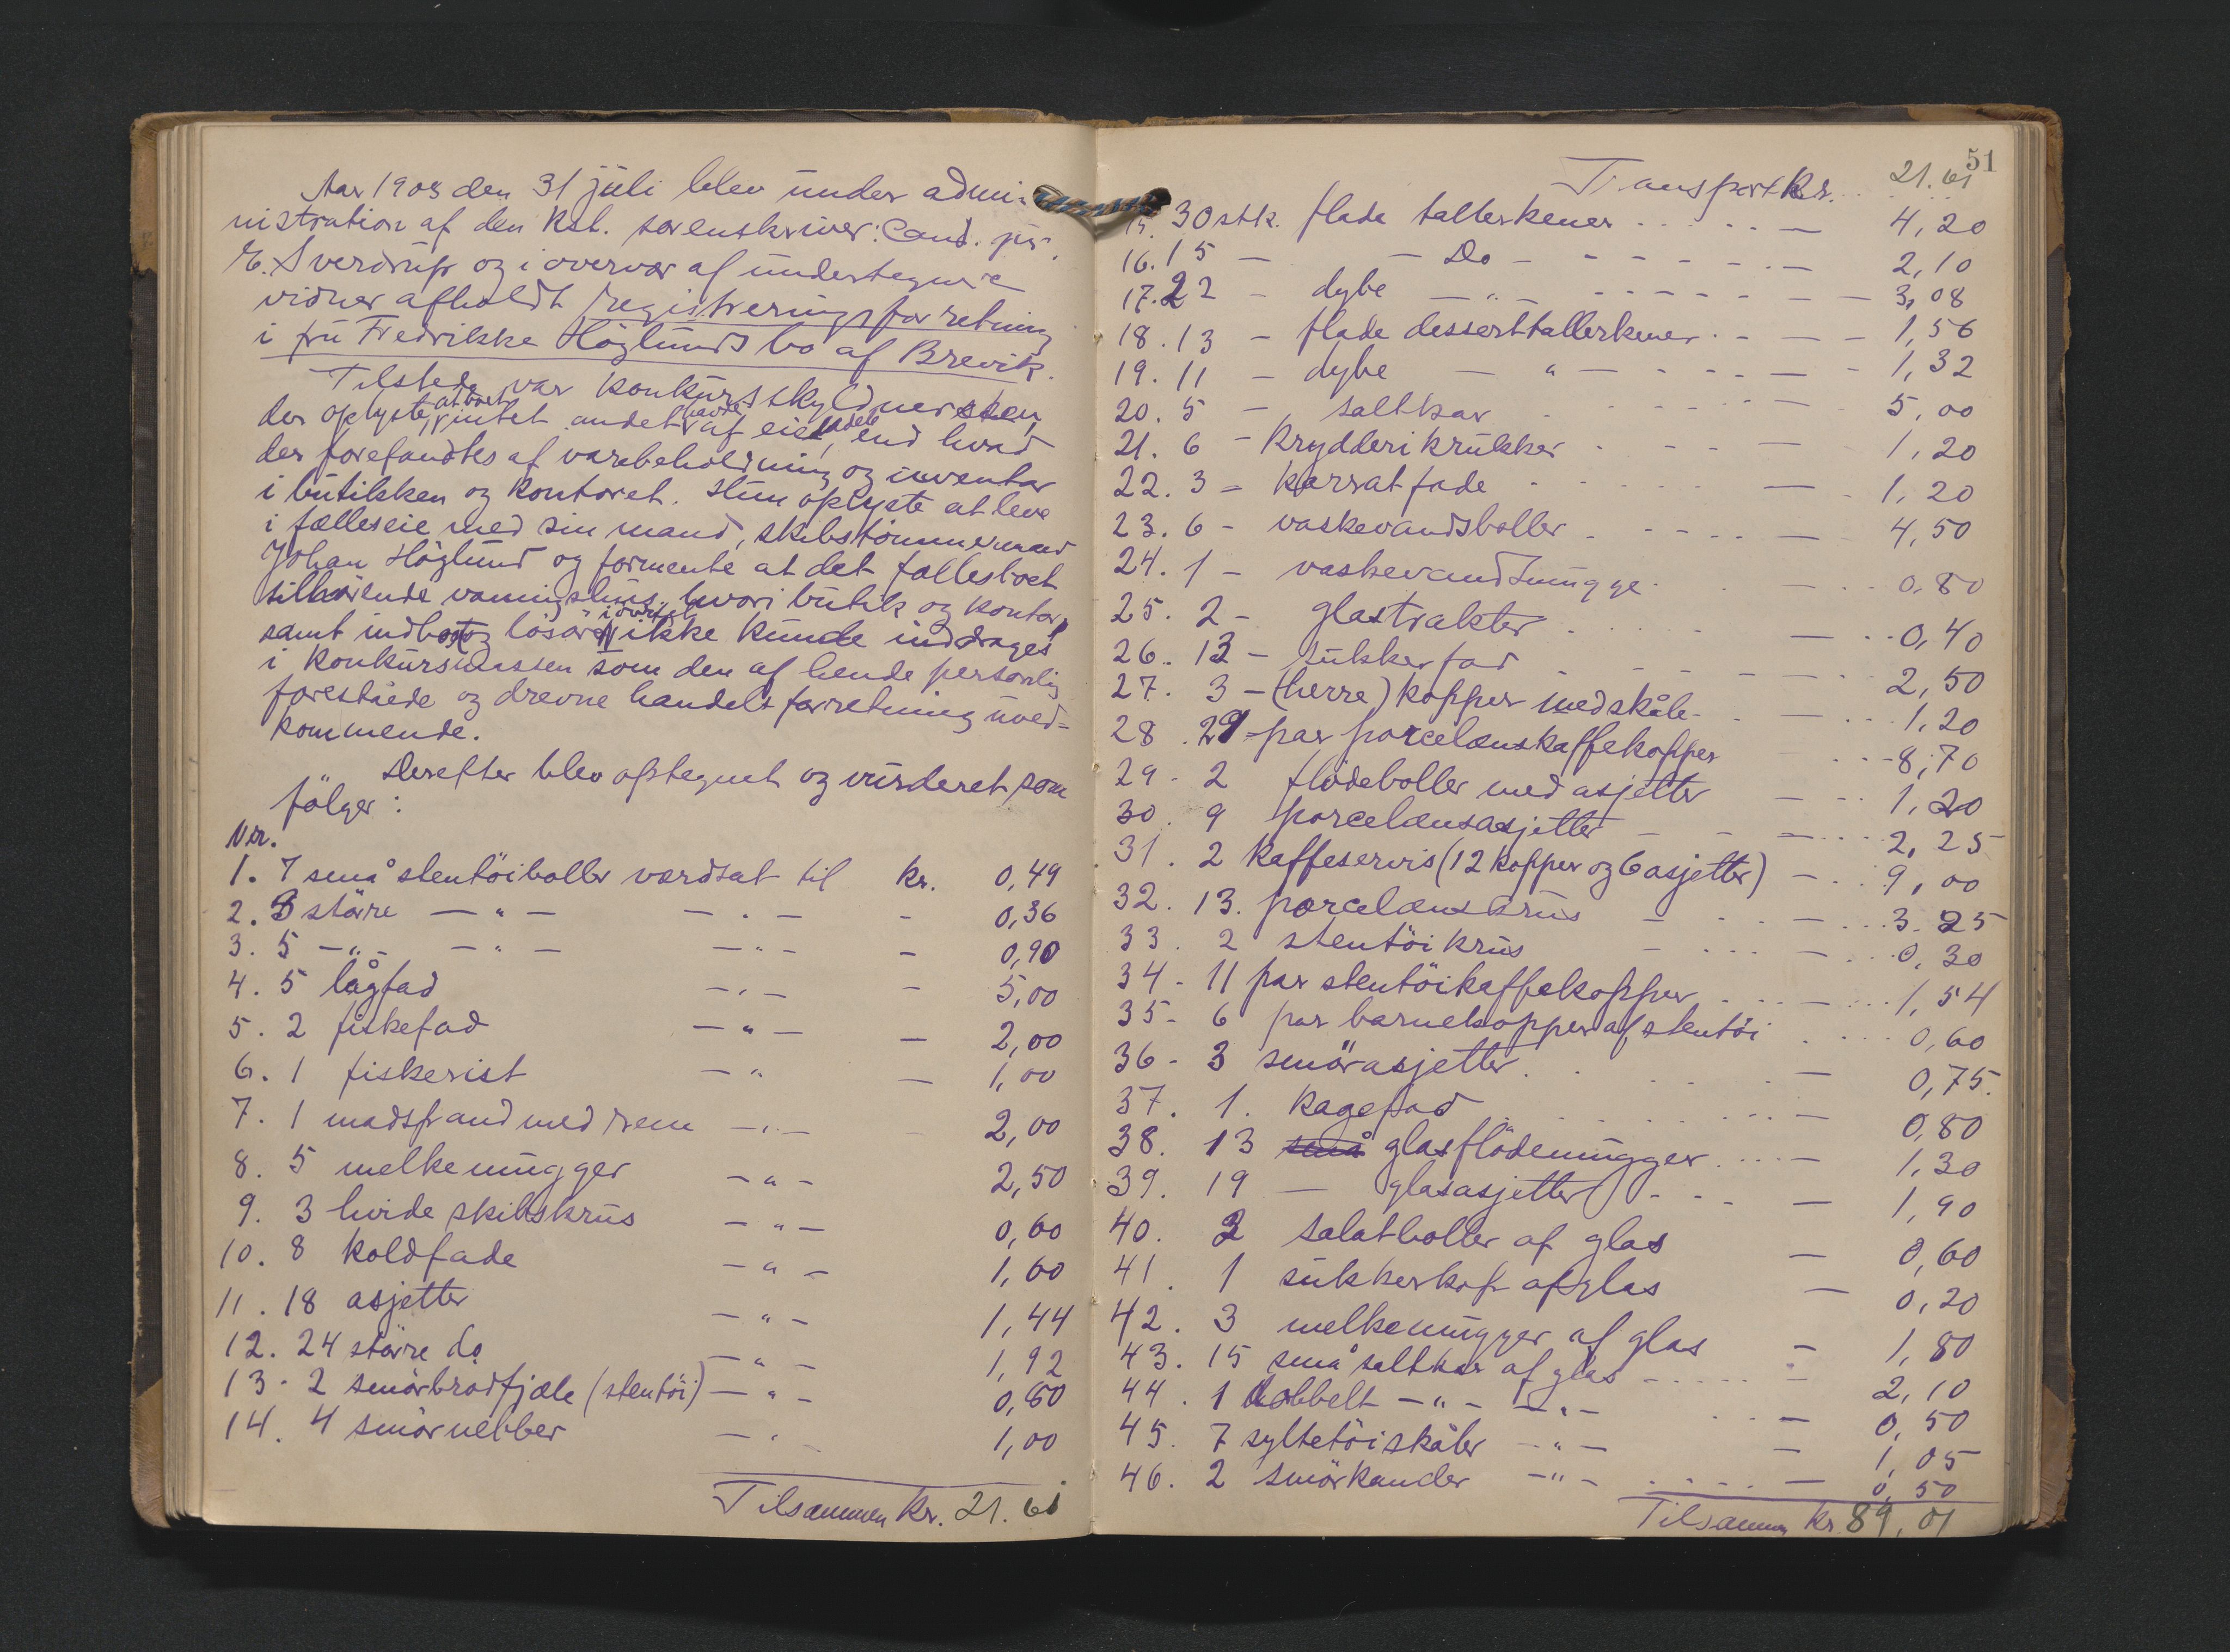 Aar 1903 den 31 juli blev under admi-
nistration af den kst. sorenskriver: Cand. jur.
E. Sverdrup og i overvær af undertegnede
vidner afholdt registreringsforretning
i fru Fredrikke Höglunds bo af Brevik.
Tilstede var konkursskyldnersken,
der oplyste, at boet intet andet havde af eiendele, end hvad
der forefandtes af varebeholdning og inventar
i butikken og kontoret. Hun oplyste at leve
i fælleseie med sin mand, skibstömmermand
Johan Höglund og formente at det fællesboet
tilhörende vaaningshus, hvori butik og kontor,
samt indbo og lösöre i övrigt ikke kunde inddrages
i konkursmassen som den af hende personlig
forestáede og drevne handelsforretning uved-
kommende.
Derefter blev optegnet og vurderet som
fölger:
Nr.
1. 7 små stentöiboller værdsat til kr. 0,49
2. 3 större — " — — " — - 0,36
3. 5 — " — — " — — " — - 0,90
4. 5 lågfad — " — - 5,00
5. 2 fiskefad — " — — 2,00
6. 1 fiskerist — " — 1,00
7. 1 madspand med rem — " — 2,00
8. 5 melkemugger — " — 2,50
9. 3 hvide skibskrus — " — 0,60
10. 8 koldfade — " — 1,60
11. 18 asjetter — " — 1,44
12. 24 större do — " — 1,92
13. 2 smörbrödfjæle (stentöi) — " — 0,60
14. 4 smörnebber — " — 1,00
Tilsammen kr. 21.61
51
Transport kr. 21.61
15. 30 stk. flade tallerkener — 4,20
16. 15 — — Do — 2,10
17. 22 — dybe — " — — 3,08
18. 13 — flade desserttallerkener — 1,56
19. 11 — dybe — " — — 1,32
20. 5 — saltkar — 5,00
21. 6 — Krydderikrukker — 1,20
22. 3 — karsatfade — 1,20
23. 6 — vaskevandsboller — 4,50
24. 1 — vaskevandsmugge — 0,80
25. 2 — glastrakter — 0,40
26. 12 — sukkerfad — 2,50
27. 3 — (herre) kopper med skåle — 1,20
28. 29 par porcelænskaffekopper 8,70
29. 2 flödeboller med asjetter — 1,20
30. 9 porcelænsasjetter — 2,25
31. 2 kaffeservis (12 kopper og 6 asjetter) — 9,00
32. 13. porcelænskrus — 3.25
33. 2 stentöikrus — 0,30
34. 11 par stentöikaffekopper — 1,54
35. 6 par barnekopper af stentöi 0,60
36. 3 smörasjetter — 0,75.
37. 1. kagefad — 0,80
38. 13 små glasflödemugger — 1,30
39. 19 — glasasjetter — 1,90
40. 2 salatboller af glas — 0,60
41. 1 sukkerkop af glas — 0,20
42. 3 melkemugger af glas — 1,80
43. 15 små saltkar af glas — 2,10
44. 1 dobbelt — " — — " — — 0,50
45. 7 syltetöiskåler — " — — 1,05
46. 2 smörkander — " — — 0,50
Tilsammen kr. 89,01